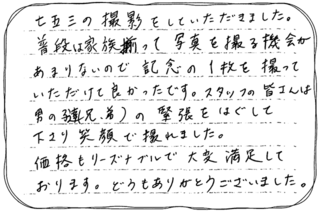 七五三の撮影をしていただきました。
普段は家族揃って写真を撮る機会が
あまりないので記念の1枚を撮って
いただけて良かったです。スタッフの皆さんは
男の子(兄弟)の緊張をほぐして
下さり笑顔で撮れました。
価格もリーズナブルで大変満足して
おります。どうもありがとうございました。